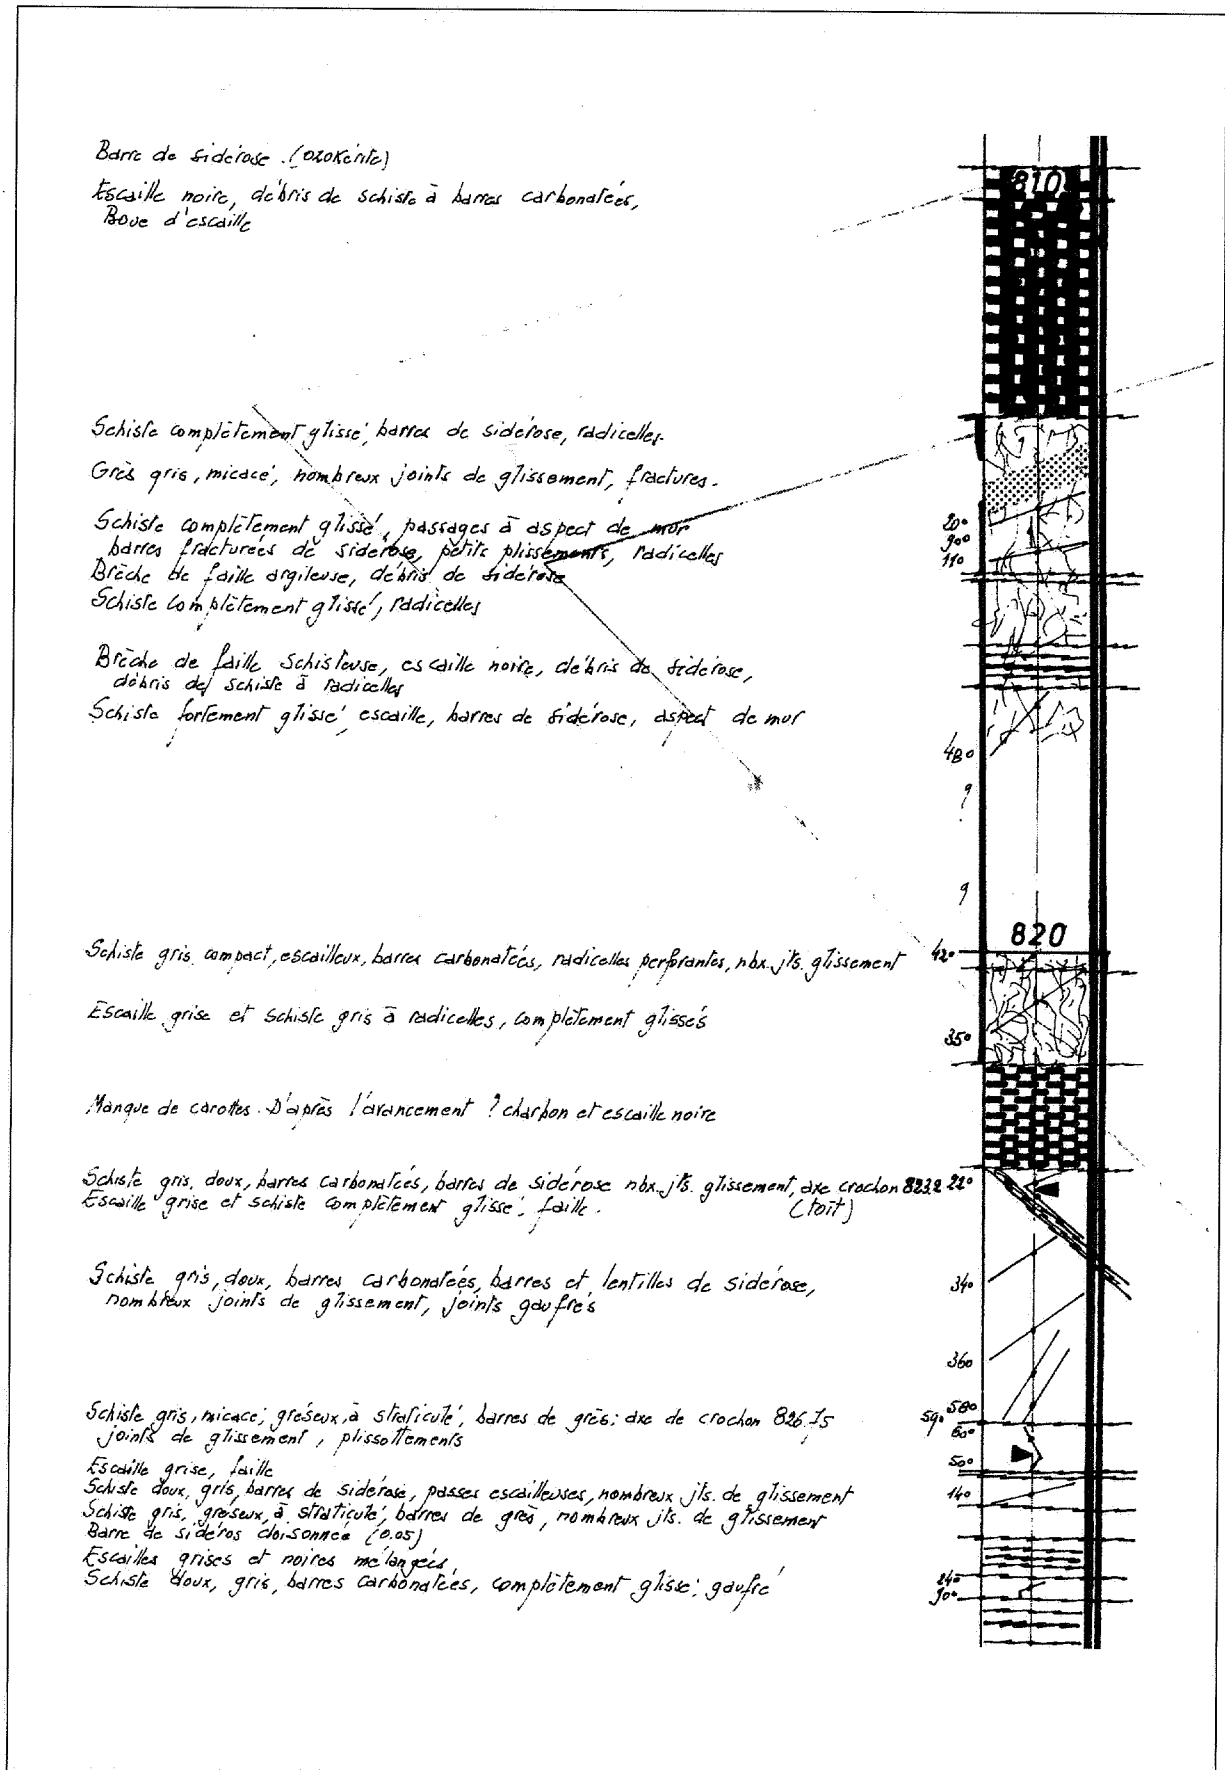 Barre de sidérose. (ozokérite)
810
Escaille noire, débris de schiste à barres carbonatées,
Boue d'escaille
Schiste complètement glissé, barres de sidérose, radicelles.
Grès gris, micacé, nombreux joints de glissement, fractures.
Schiste complètement glissé, passages à aspect de mur
20°
90°
barres fracturées de sidérose, petits plissements, radicelles
110
Brèche de faille argileuse, débris de sidérose
Schiste complètement glissé, radicelles
Brèche de faille schisteuse, escaille noire, débris de sidérose,
débris de schiste à radicelles
Schiste fortement glissé, escaille, barres de sidérose, aspect de mur
48°
?
?
820
Schiste gris, compact, escailleux, barres carbonatées, radicelles perforantes, nbx. jts. glissement 42°
Escaille grise et schiste gris à radicelles, complètement glissés
35°
Manque de carottes. D'après l'avancement ? charbon et escaille noire
Schiste gris, doux, barres carbonatées, barres de sidérose nbx. jts. glissement, axe crochon 823.2 22°
Escaille grise et schiste complètement glissé, faille. (toit)
Schiste gris, doux, barres carbonatées, barres et lentilles de sidérose,
34°
nombreux joints de glissement, joints gaufrés
36°
58°
Schiste gris, micacé, gréseux, à straticulé, barres de grès; axe de crochon 826.75
59°
60°
joints de glissement, plissottements
50°
Escaille grise, faille
Schiste doux, gris, barres de sidérose, passes escailleuses, nombreux jts. de glissement
14°
Schiste gris, gréseux, à straticulé, barres de grès, nombreux jts. de glissement
Barre de sidéros cloisonnée (0.05)
Escailles grises et noires mélangées
Schiste doux, gris, barres carbonatées, complètement glissé, gaufré
24°
90°